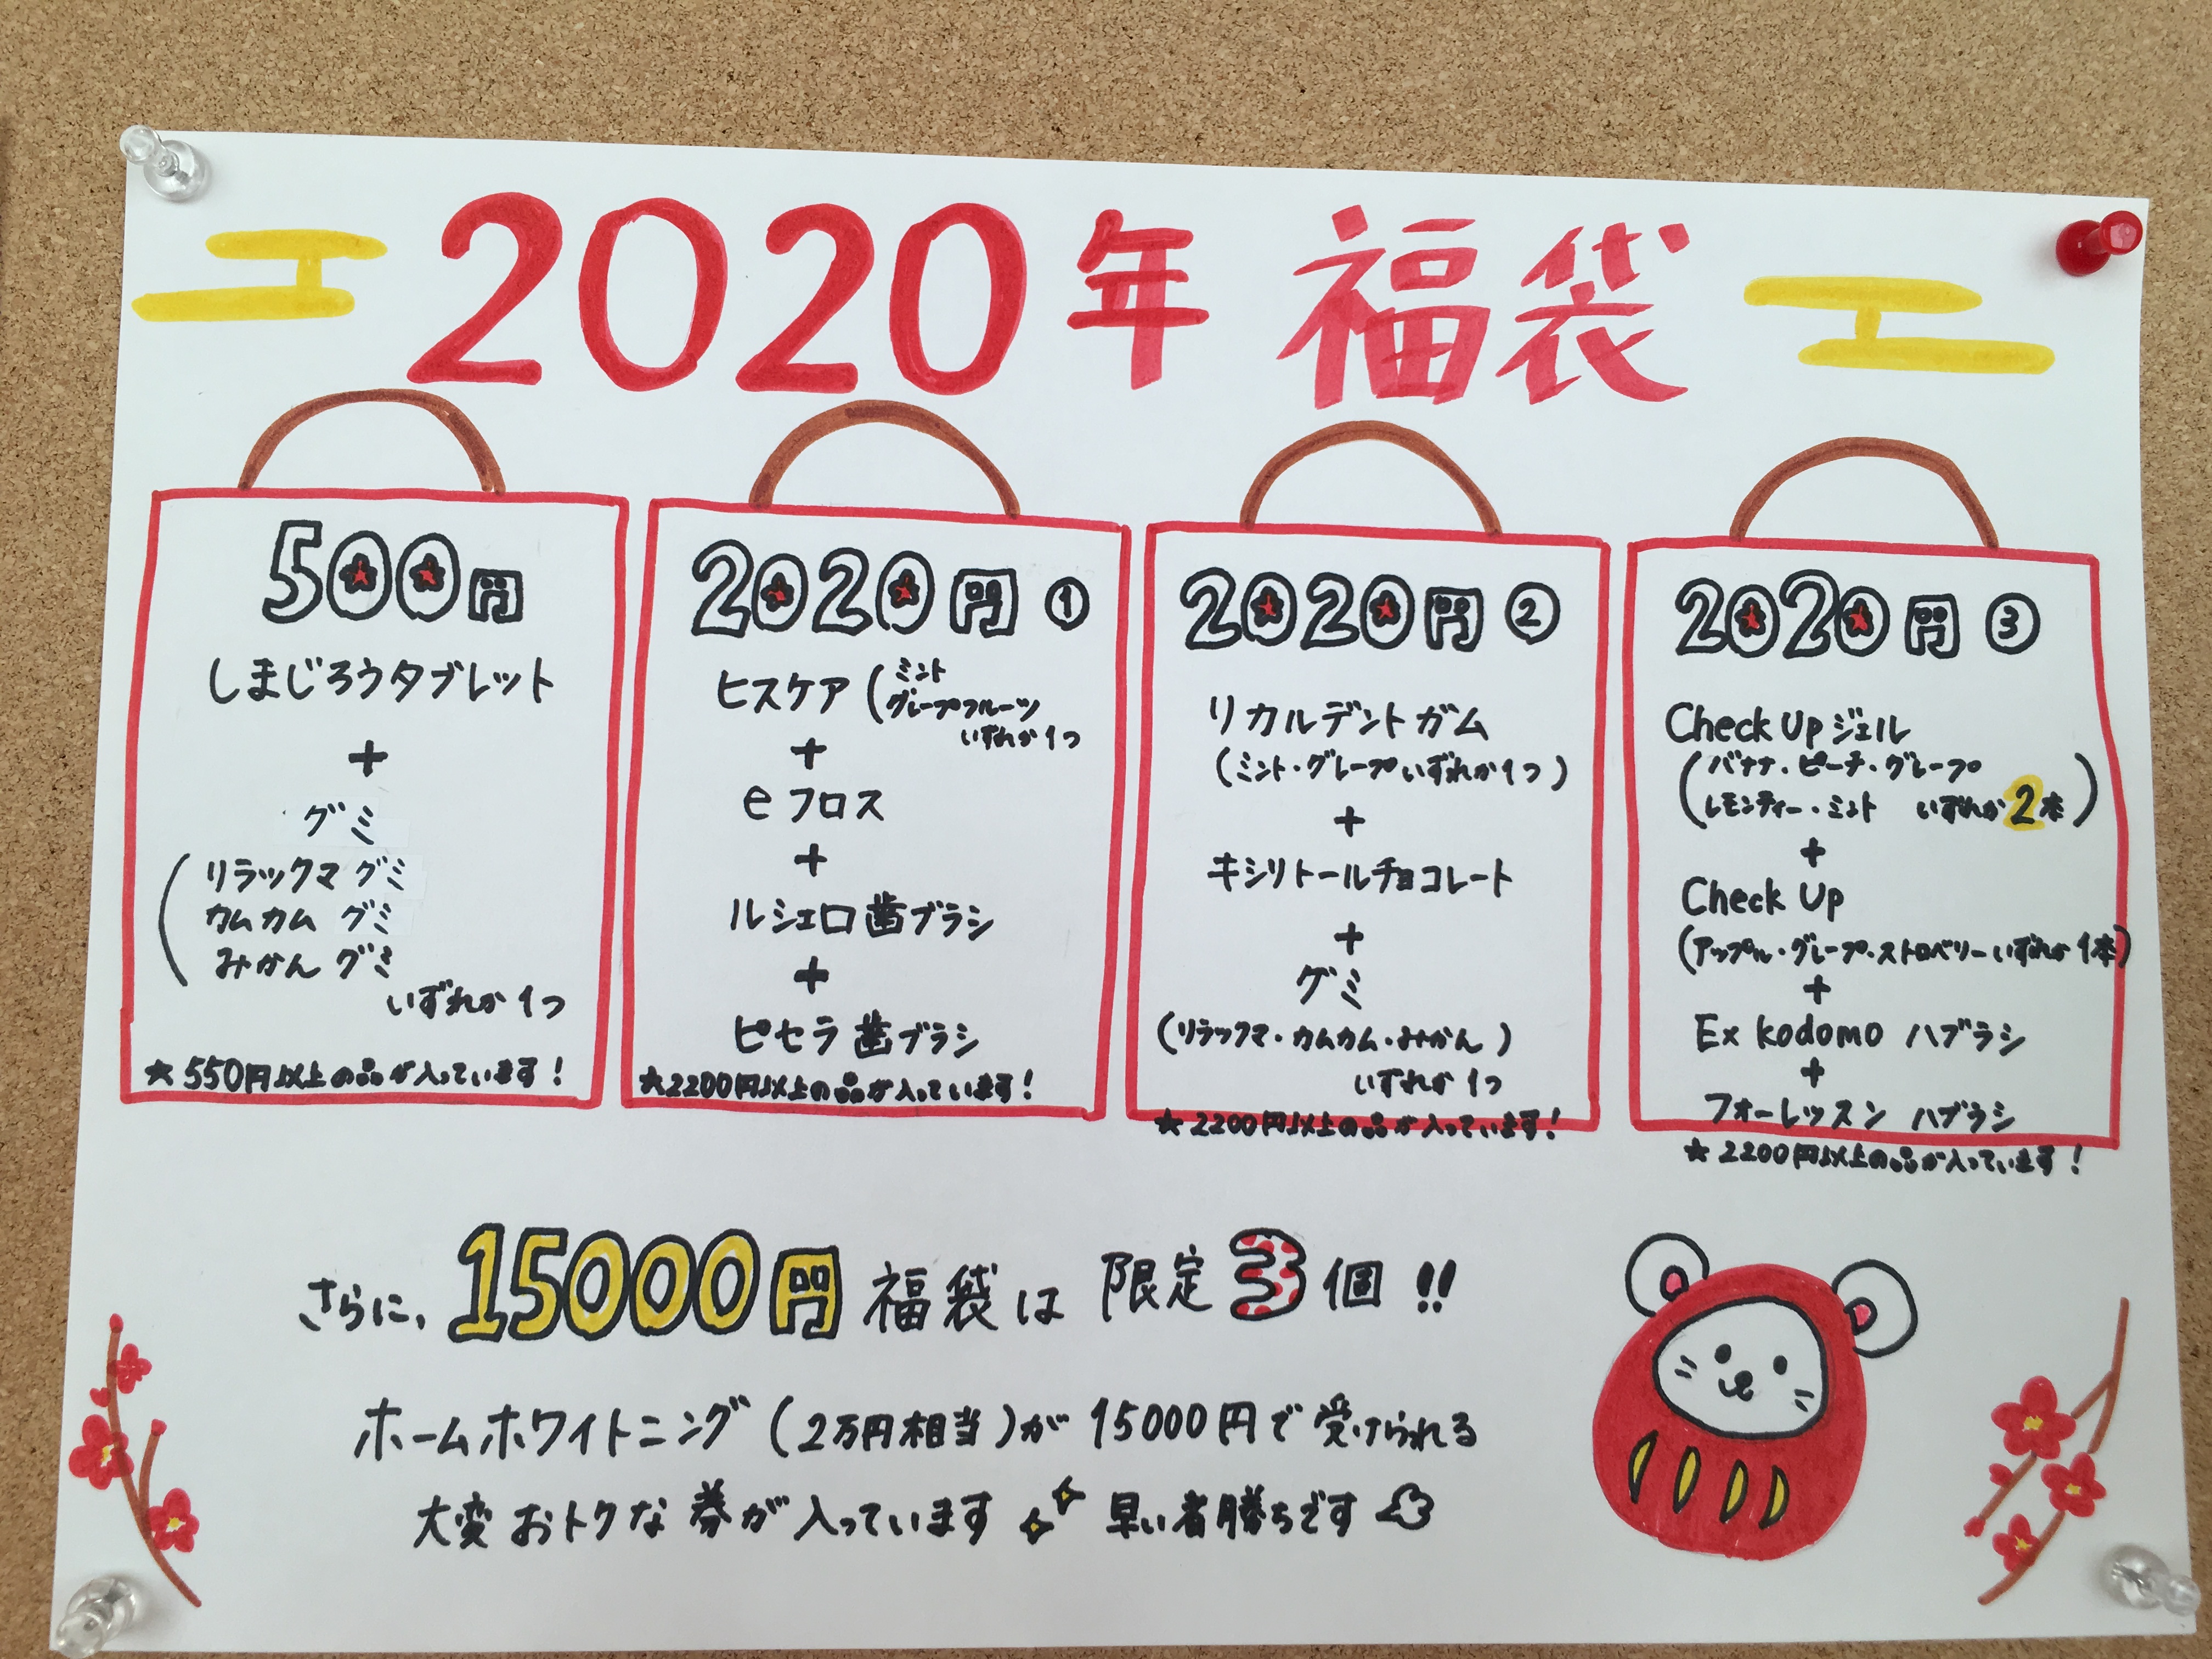 2020年 福袋
500円
しまじろうタブレット
+
グミ
(リラックマ グミ
カムカム グミ
みかん グミ
いずれか1つ
★550円以上の品が入っています!
2020円 ①
ヒスケア(ミント
グレープフルーツ
いずれか1つ
+
e フロス
+
ルシェロ歯ブラシ
+
ピセラ歯ブラシ
★2200円以上の品が入っています!
2020円 ②
リカルデントガム
(ミント・グレープいずれか1つ)
+
キシリトールチョコレート
+
グミ
(リラックマ・カムカム・みかん)
いずれか1つ
★2200円以上の品が入っています!
2020円 ③
Check Up ジェル
(バナナ・ピーチ・グレープ
レモンティー・ミント いずれか2本)
+
Check Up
(アップル・グレープ・ストロベリーいずれか1本)
+
Ex kodomo ハブラシ
+
フォーレッスン ハブラシ
★2200円以上の品が入っています!
さらに、15000円 福袋は 限定3個!!
ホームホワイトニング(2万円相当)が 15000円で受けられる
大変おトクな券が入っています 早い者勝ちです